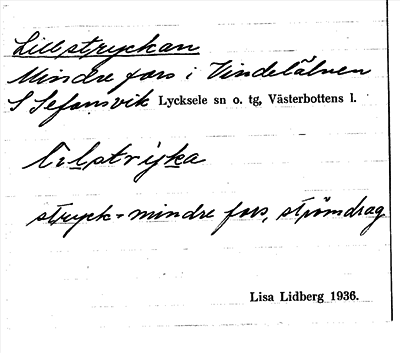 Lillstryckan
Mindre fors i Vindelälven
S Sefansvik Lycksele sn o. tg, Västerbottens l.
stryck = mindre fors, strömdrag
Lisa Lidberg 1936.